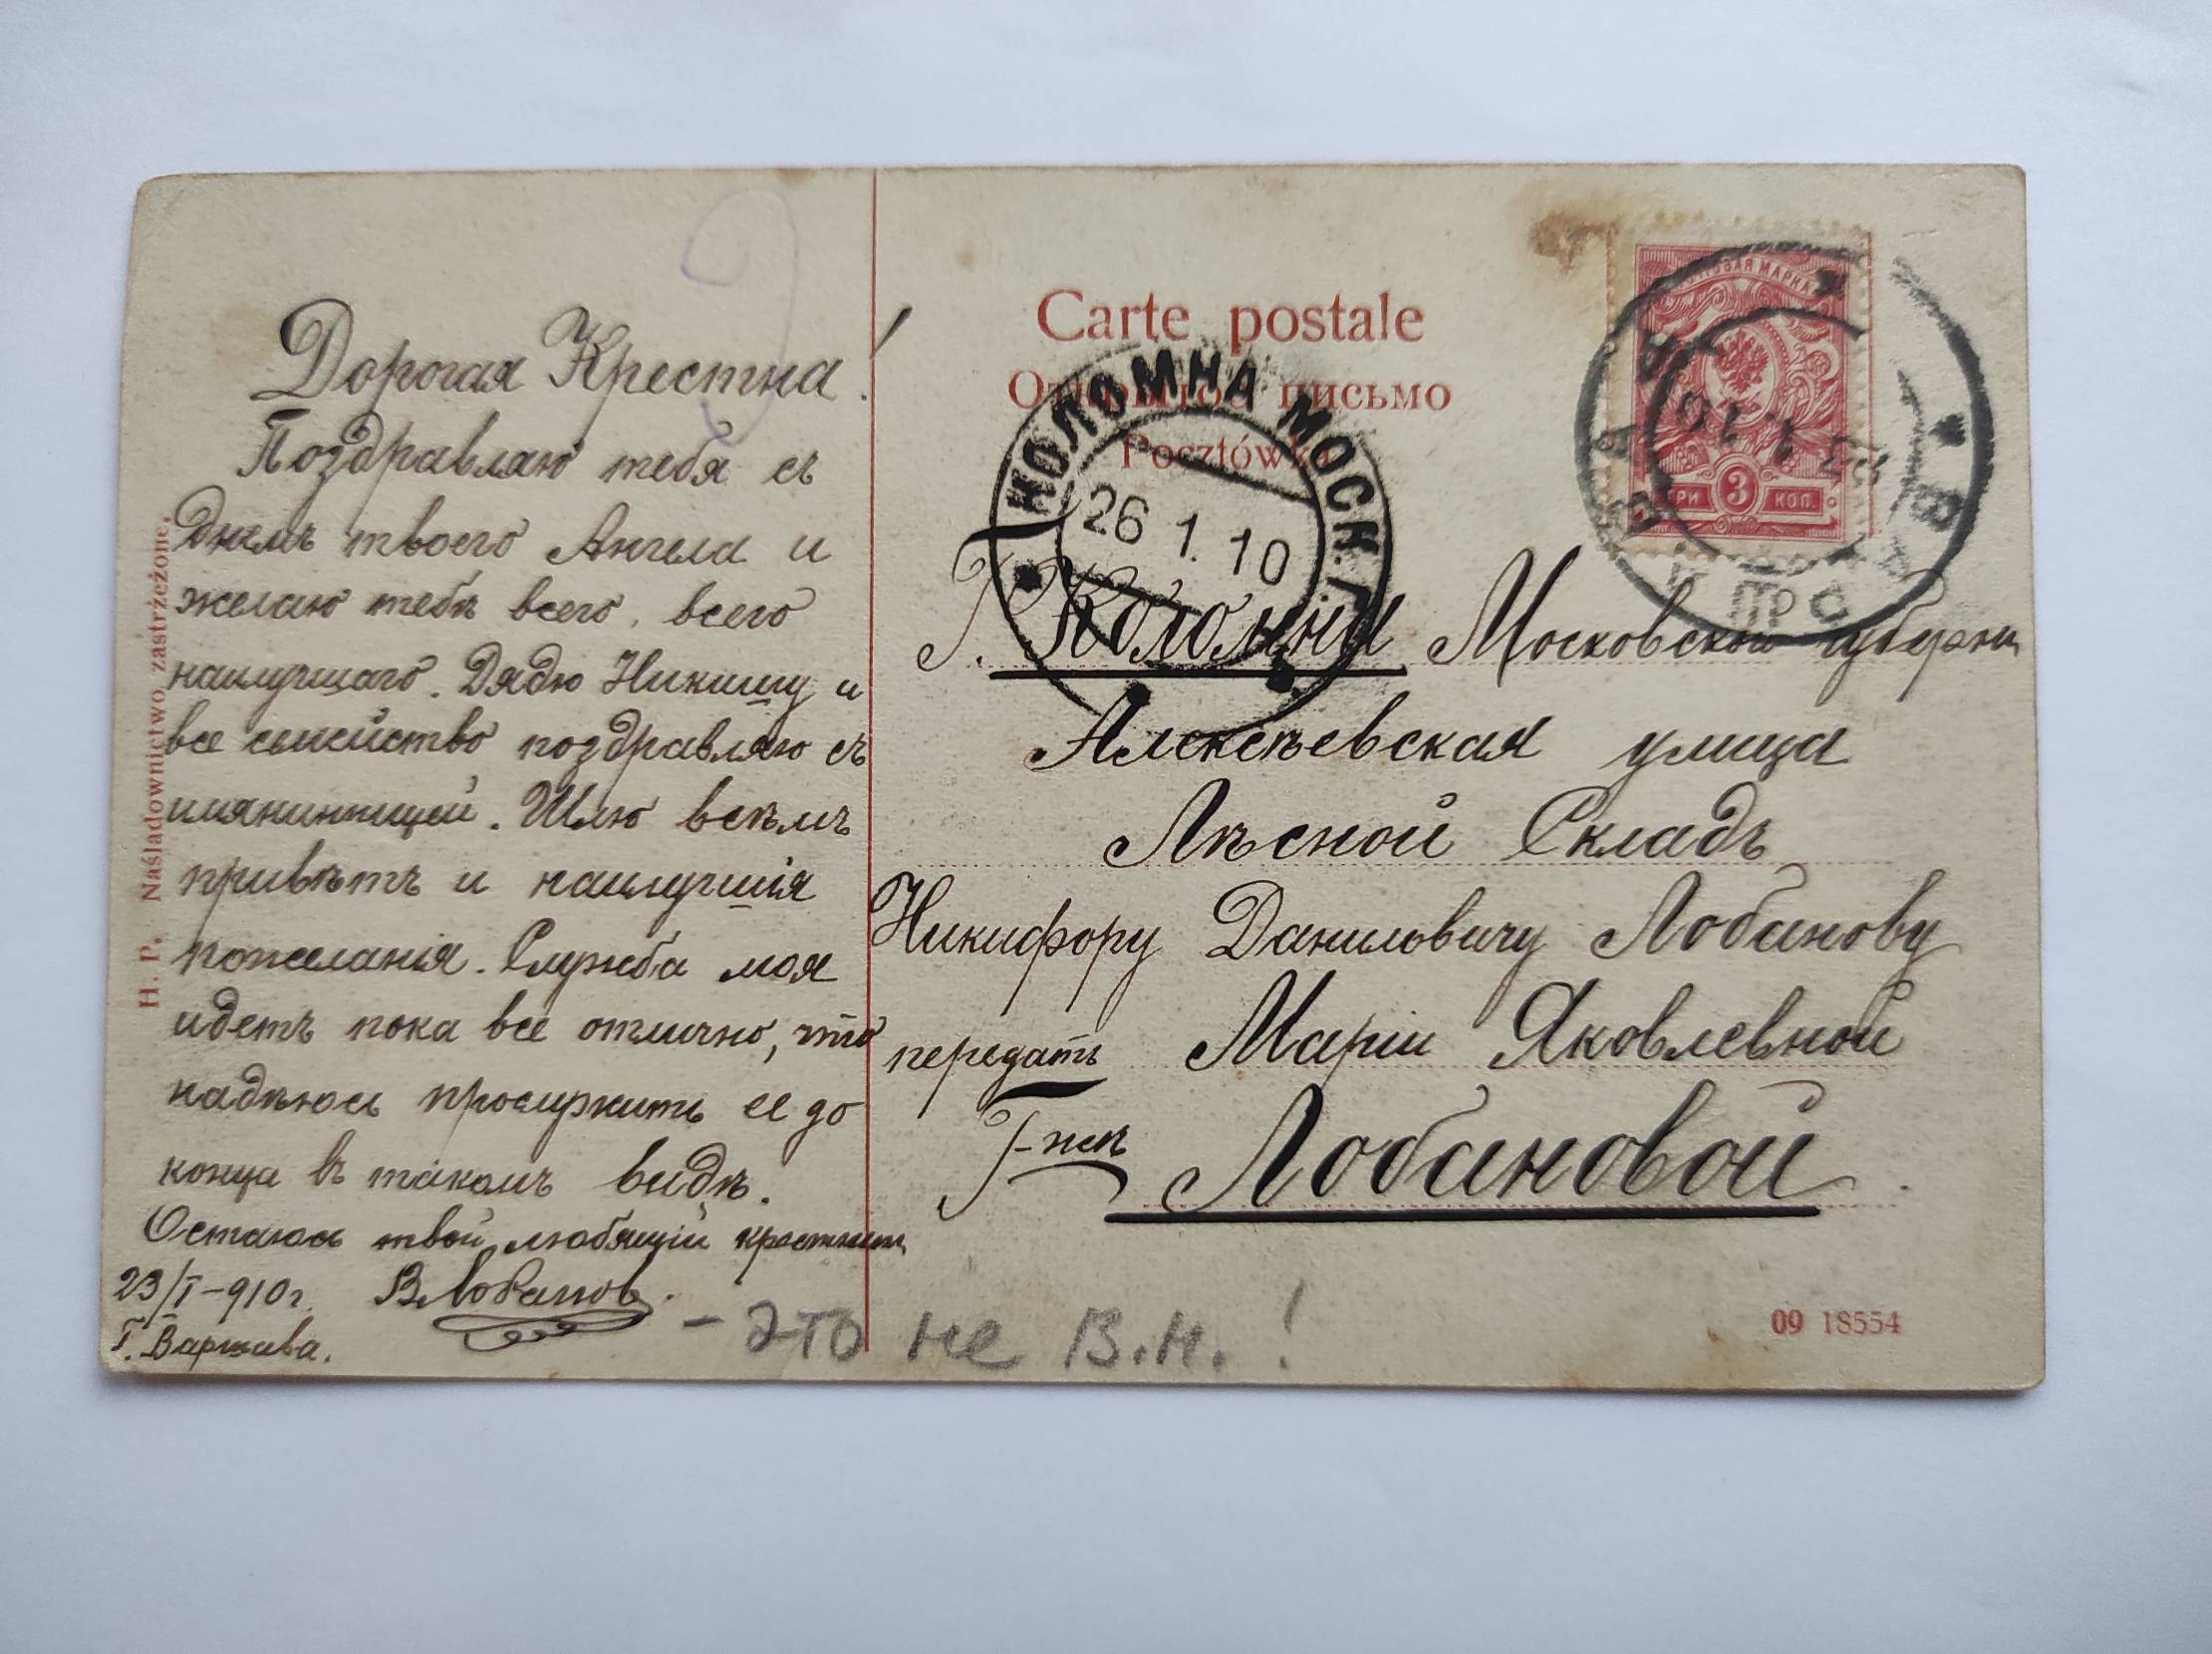 Дорогая Крестна!
Поздравляю тебя съ
днемъ твоего Ангела и
желаю тебѣ всего, всего
наилучшаго. Дядю Никишу и
все семейство поздравляю съ
имянинницей. Шлю всѣмъ
привѣтъ и наилучшія
пожеланія. Служба моя
идетъ пока все отлично, что
надѣюсь прослужить ее до
конца въ такомъ видѣ.
Остаюсь твой любящій крестникъ
23/I-910г. ВЛобановъ.
Г. Варшава.
- это не В.Н.!
H. P. Naśladownictwo zastrzeżone.
Carte postale
Открытое письмо
Pocztówka
КОЛОМНА МОСК. Г.
26 1. 10
ПОЧТОВАЯ МАРКА
ТРИ 3 КОП.
ВАРШАВА
23 1 10
Г. Коломна Московской губерніи
Алексѣевская улица
Лѣсной Складъ
Никифору Даниловичу Лобанову
передать Маріи Яковлевной
Г-жѣ Лобановой.
09 18554